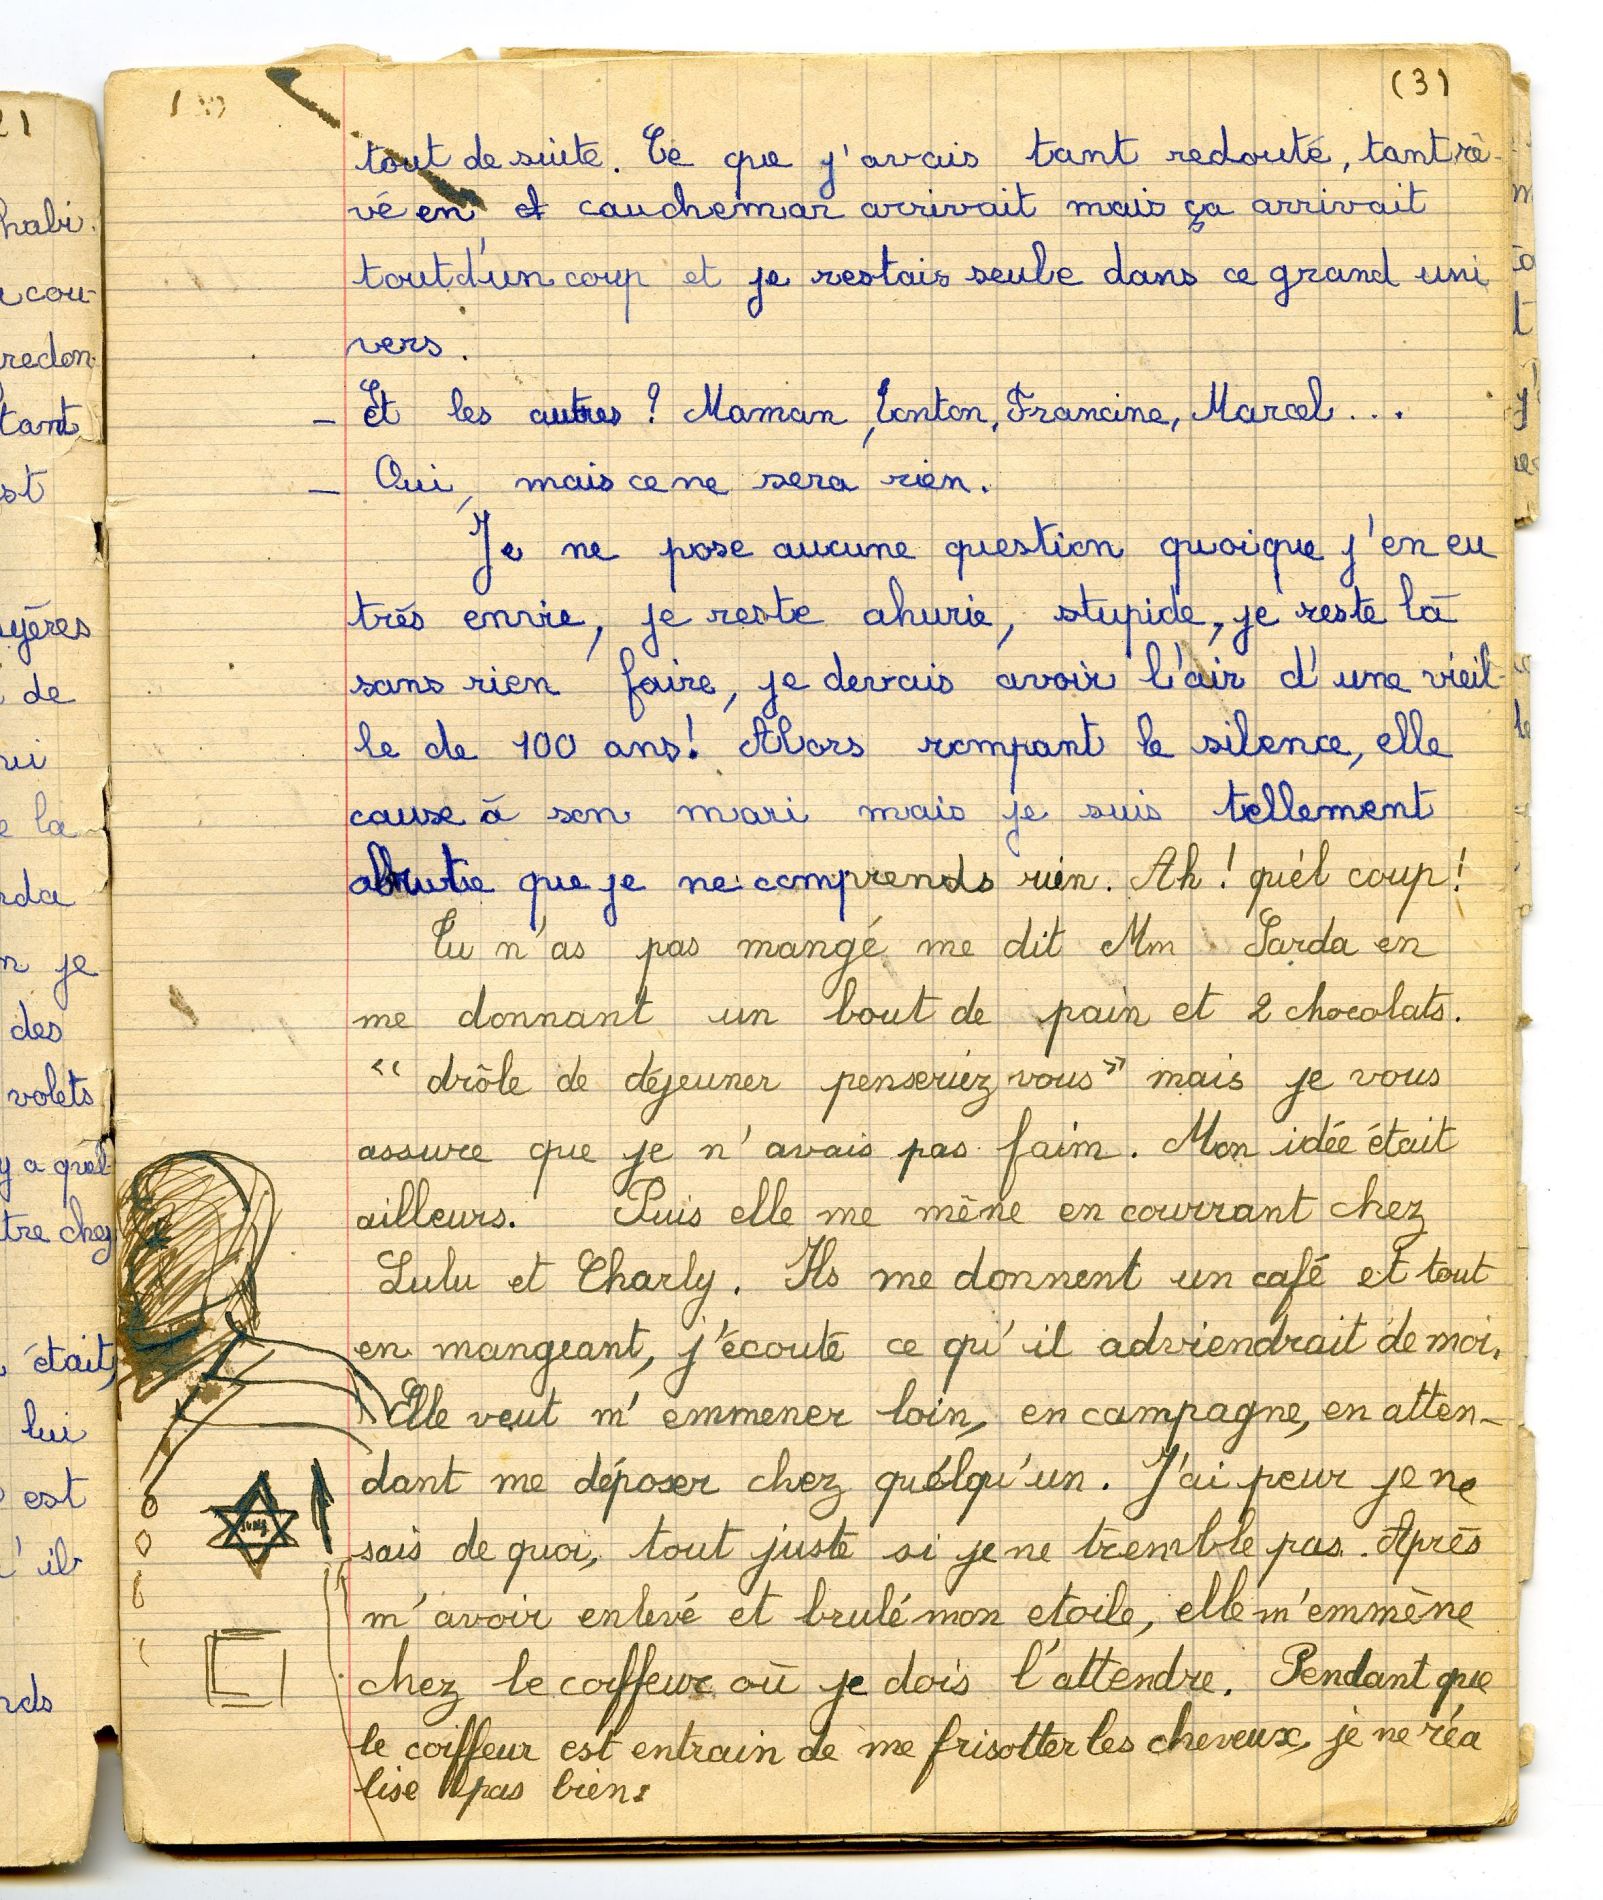 21
habi.
cou-
redon-
tant
st
yères
de
ui
e la
rda
n je
des
volets
y a quel-
tre chez
était,
lui
est
' il
rds
(3)
tout de suite. Ce que j'avais tant redouté, tant rê-
vé en et cauchemar arrivait mais ça arrivait
tout d'un coup et je restais seule dans ce grand uni
vers.
– Et les autres ? Maman, Tonton, Francine, Marcel...
– Oui, mais ce ne sera rien.
Je ne pose aucune question quoique j'en eu
très envie, je reste ahurie, stupide, je reste là
sans rien faire, je devais avoir l'air d'une vieil-
le de 100 ans! Alors rompant le silence, elle
cause à son mari mais je suis tellement
abrutie que je ne comprends rien. Ah! quel coup!
Tu n'as pas mangé me dit Mm Sarda en
me donnant un bout de pain et 2 chocolats.
"drôle de déjeuner penseriez vous" mais je vous
assure que je n'avais pas faim. Mon idée était
ailleurs. Puis elle me mène en courrant chez
Lulu et Charly. Ils me donnent un café et tout
en mangeant, j'écoute ce qu'il adviendrait de moi.
Elle veut m'emmener loin, en campagne, en atten-
dant me déposer chez quelqu'un. J'ai peur je ne
sais de quoi, tout juste si je ne tremble pas. Après
m'avoir enlevé et brulé mon etoile, elle m'emmène
chez le coiffeur où je dois l'attendre. Pendant que
le coiffeur est entrain de me frisotter les cheveux, je ne réa
lise pas bien.